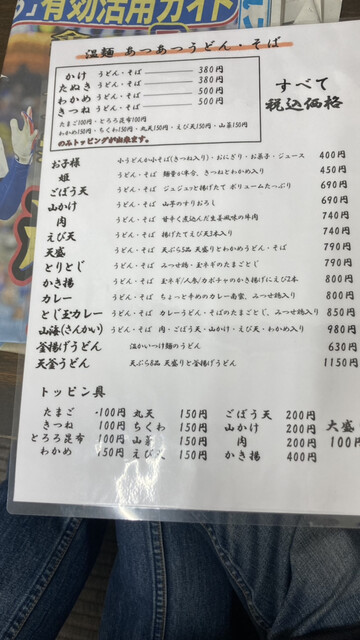 有効活用ガイド
温麺 あつあつうどん・そば
かけ うどん・そば 380円
たぬき うどん・そば 380円
わかめ うどん・そば 500円
きつね うどん・そば 500円
たまご100円・とろろ昆布100円
わかめ150円・ちくわ150円・丸天150円・えび天150円・山菜150円
のみトッピングが出来ます。
すべて
税込価格
お子様 小うどんか小そば(きつね入り)・おにぎり・お菓子・ジュース 400円
姫 うどん・そば 麺量が半分、きつねとわかめ入り 450円
ごぼう天 うどん・そば ジュジュッと揚げたて ボリュームたっぷり 690円
山かけ うどん・そば 山芋のすりおろし 690円
肉 うどん・そば 甘辛く煮込んだ生姜風味の牛肉 740円
えび天 うどん・そば 揚げたてえび天3本入り 740円
天盛 うどん・そば 天ぷら5品 天盛りとわかめうどん・そば 790円
とりとじ うどん・そば みつせ鶏・玉ネギのたまごとじ 790円
かき揚 うどん・そば 玉ネギ/人参/カボチャのかき揚げにえび2本 800円
カレー うどん・そば ちょっと辛めのカレー南蛮、みつせ鶏入り 800円
とじ玉カレー うどん・そば カレーうどん・そばのたまごとじ、みつせ鶏入り 850円
山海(さんかい) うどん・そば 肉・ごぼう天・山かけ・えび天・わかめ入り 980円
釜揚げうどん 温かいつけ麺のうどん 630円
天釜うどん 天ぷら8品 天盛りと釜揚げうどん 1150円
トッピン具
たまご 100円 丸天 150円 ごぼう天 200円 大盛
きつね 100円 ちくわ 150円 山かけ 200円 100円
とろろ昆布 100円 山菜 150円 肉 200円
わかめ 150円 えび天 150円 かき揚 400円